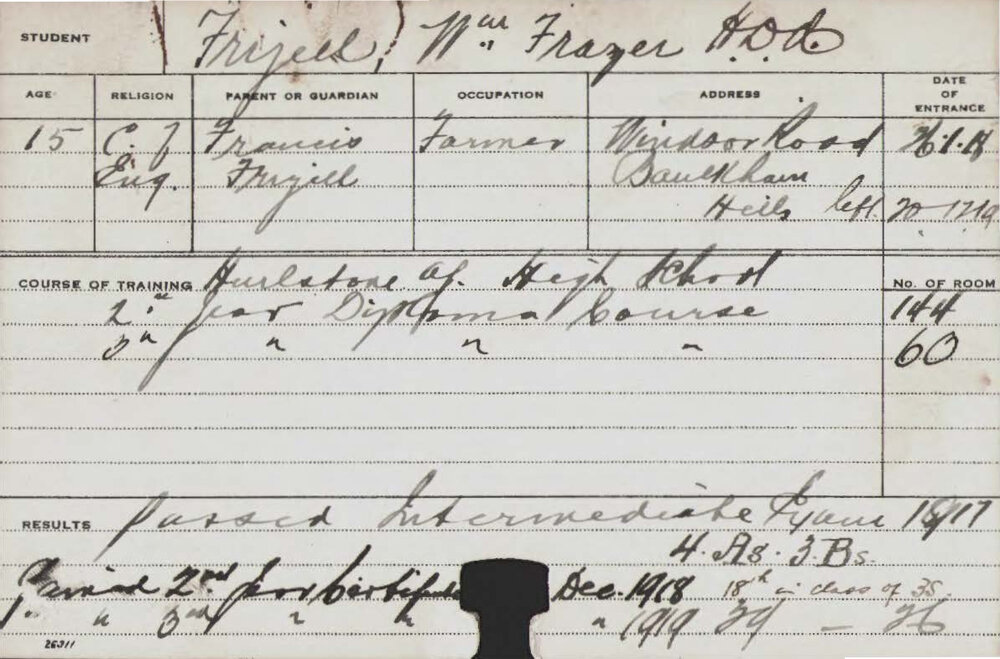 STUDENT Frizell, Wm Frazer H.D.A.
AGE RELIGION PARENT OR GUARDIAN OCCUPATION ADDRESS DATE OF ENTRANCE
15 C. of Francis Farmer Windsor Road 1.18
Eng. Frizell Baulkham
Hills left 20 1219
COURSE OF TRAINING Hurlstone Ag. High School No. OF ROOM
2nd year Diploma Course 144
3 " " " " 60
RESULTS Passed Intermediate Exam 1917
4. As. 3. Bs.
2nd year Certificate Dec. 1918 18th in class of 35
" " 3rd " " " 1919 - 26
26311